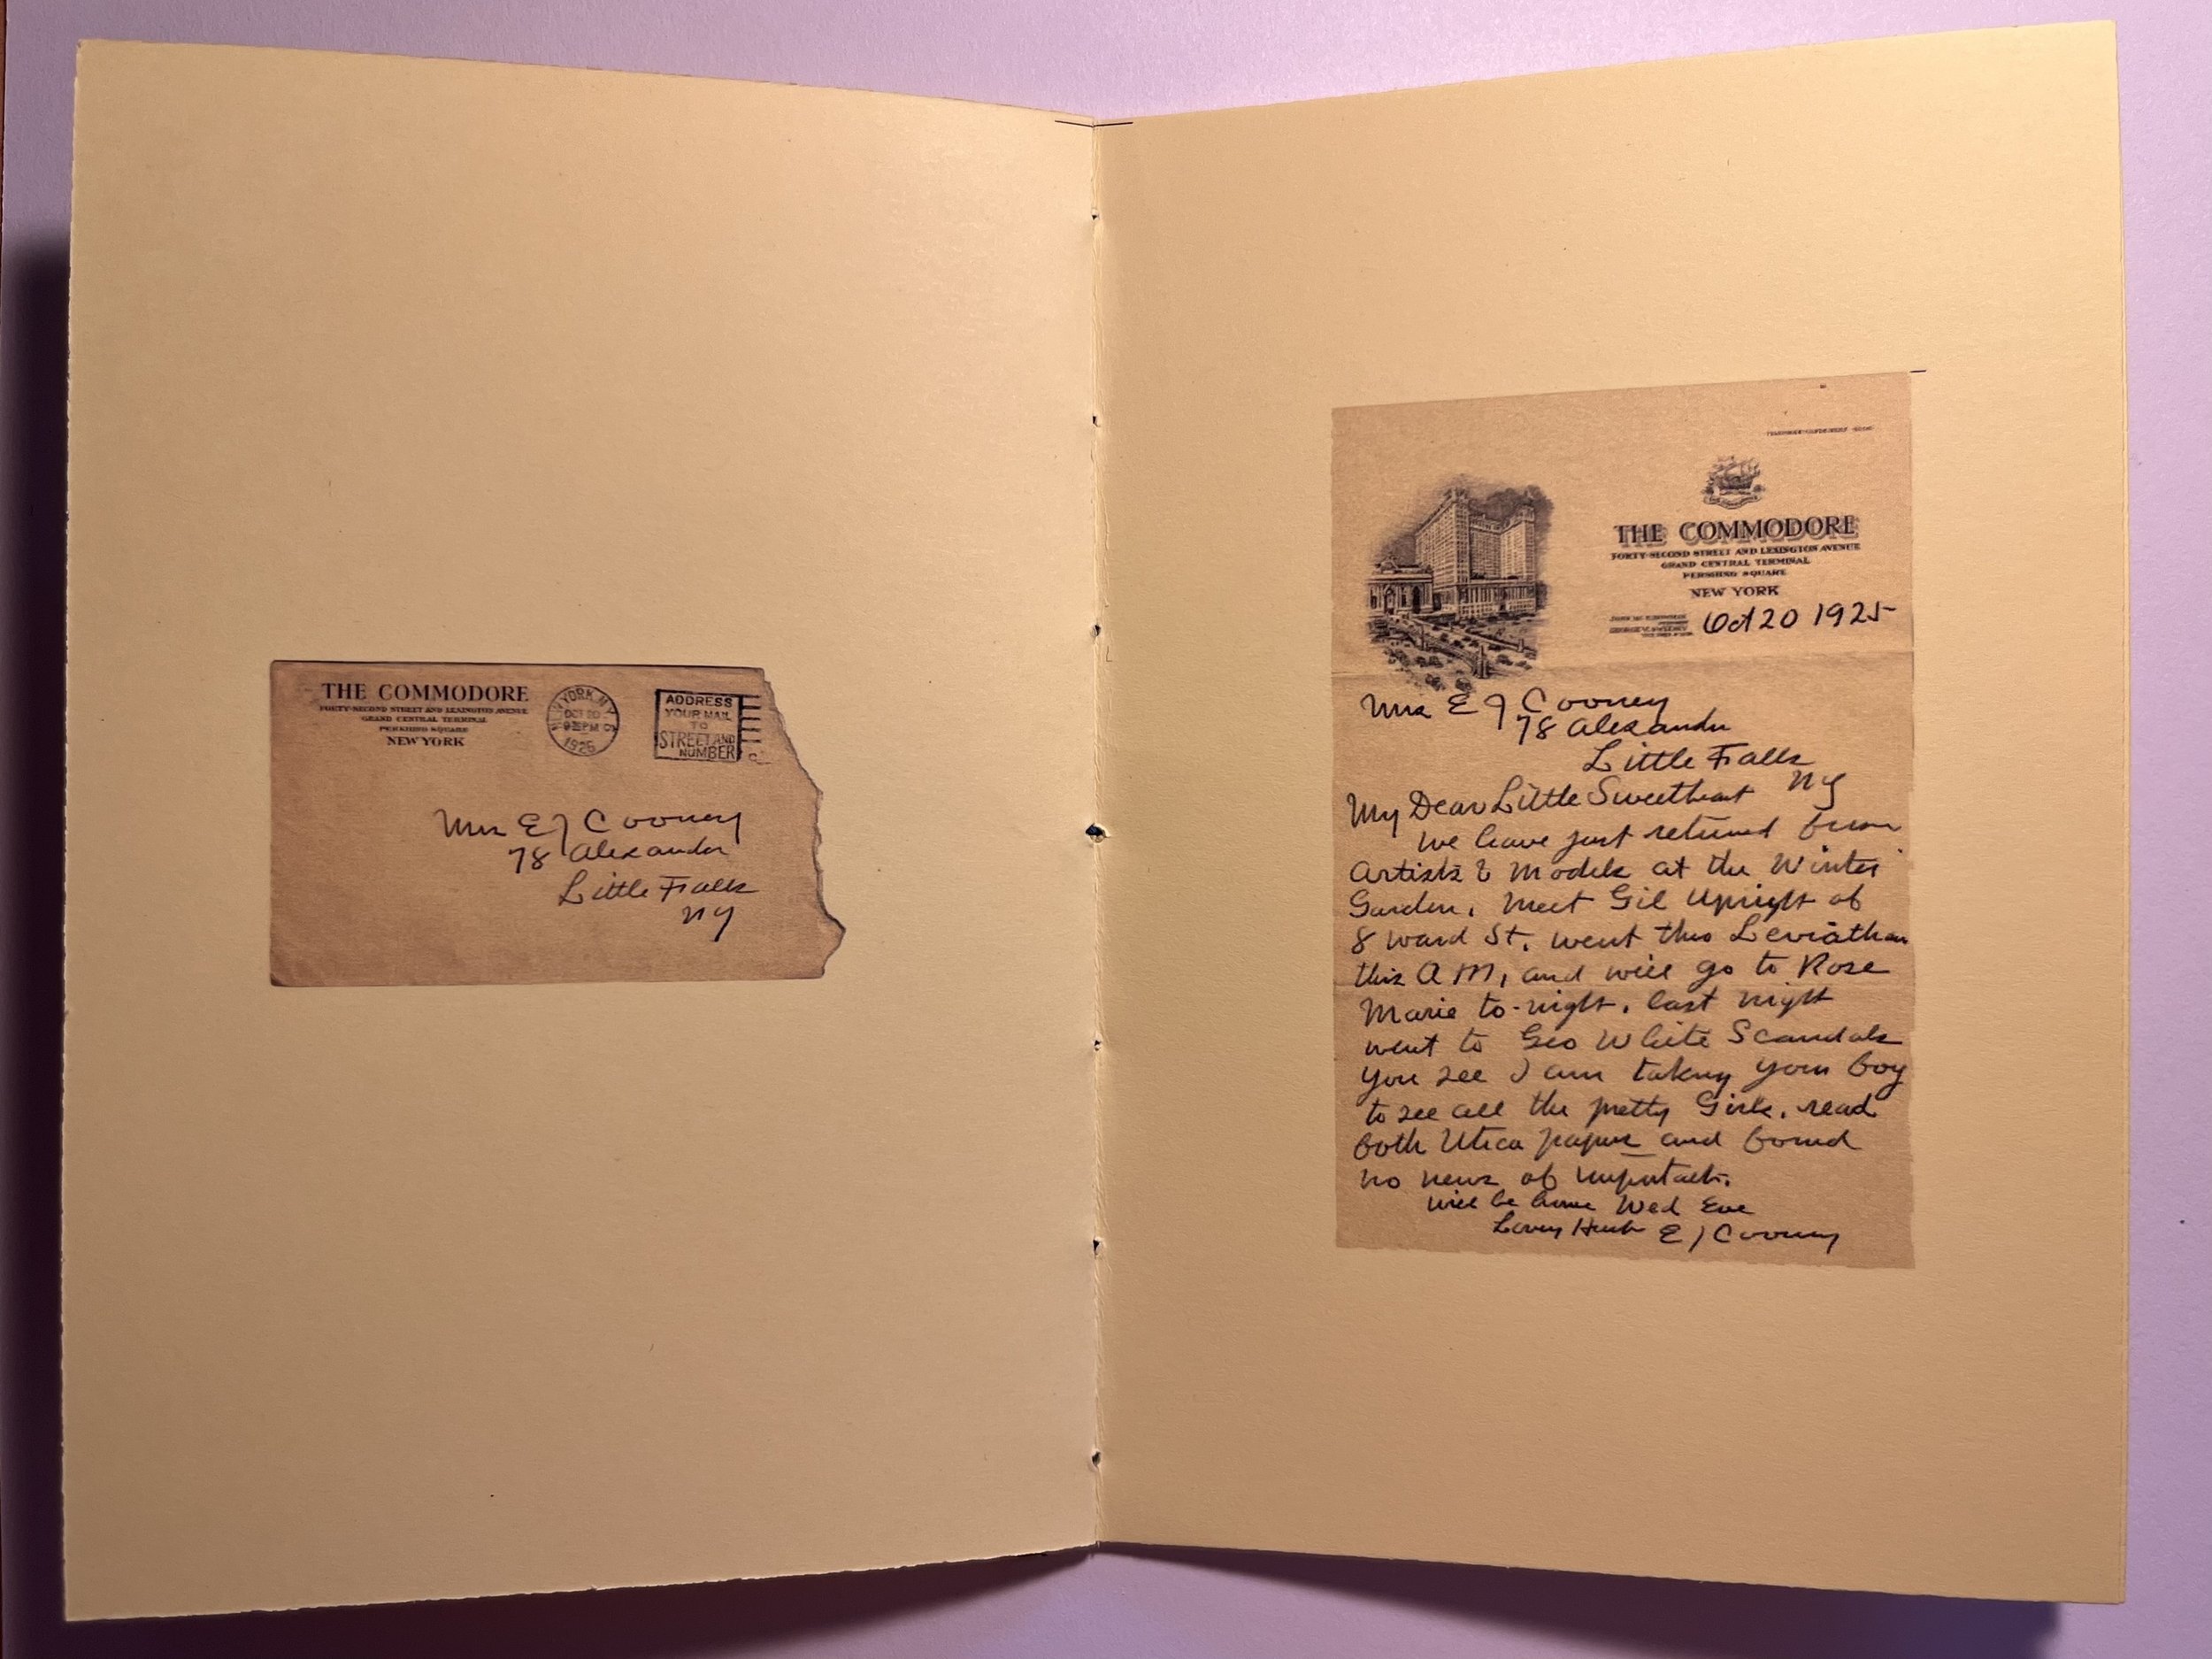 THE COMMODORE
FORTY-SECOND STREET AND LEXINGTON AVENUE
GRAND CENTRAL TERMINAL
PERSHING SQUARE
NEW YORK
NEW YORK, N.Y.
OCT 20
PM
1925
ADDRESS
YOUR MAIL
TO
STREET AND
NUMBER
Mrs E J Cooney
78 Alexander
Little Falls
NY
THE COMMODORE
FORTY-SECOND STREET AND LEXINGTON AVENUE
GRAND CENTRAL TERMINAL
PERSHING SQUARE
NEW YORK
Oct 20 1925
Mrs E J Cooney
78 Alexander
Little Falls
NY
My Dear Little Sweetheart
We have just returned from
Artists & Models at the Winter
Garden. Meet Gil Upright of
8 Ward St. went thro Leviathan
this A M, and will go to Rose
Marie to-night. last night
went to Geo White Scandals
You see I am taking your boy
to see all the pretty Girls. read
both Utica papers and found
no news of
will be home Wed Eve
Loving Husb E J Cooney